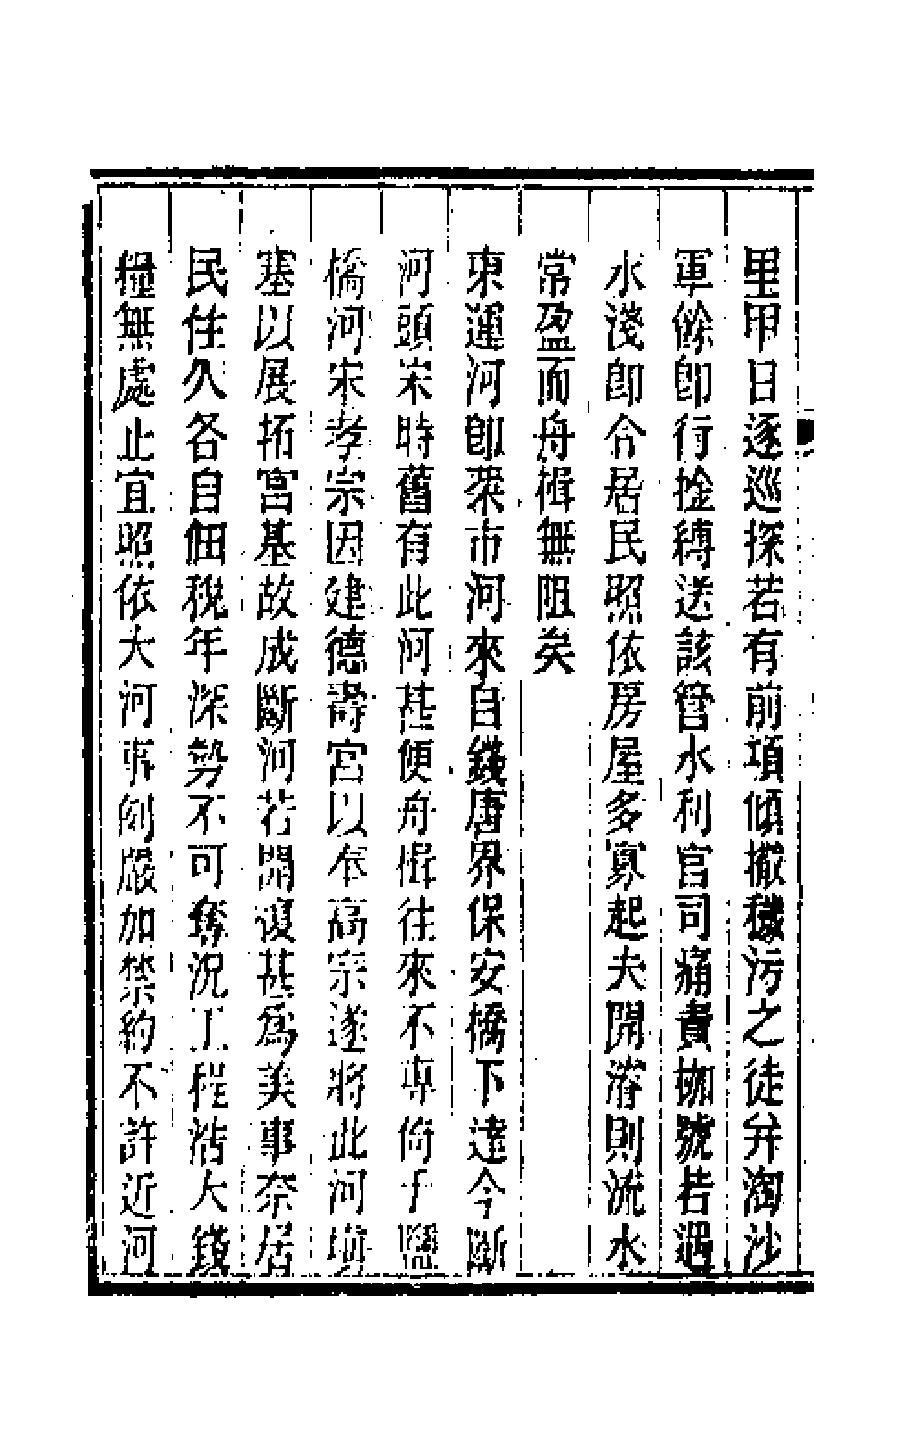 里甲日逐巡探若有前項傾撒穢污之徒幷淘沙
軍餘卽行拴縛送該管水利官司痛責枷號若遇
水淺卽令居民照依房屋多寡起夫開濬則流水
常盈而舟楫無阻矣
東運河卽菜市河來自錢唐界保安橋下達今斷
河頭宋時舊有此河甚便舟楫往來不專倚于鹽
橋河宋孝宗因建德壽宮以奉高宗遂將此河塡
塞以展拓宮基故成斷河若開復甚爲美事奈居
民住久各自佃稅年深勢不可奪況工程浩大錢
糧無處止宜照依大河事例嚴加禁約不許近河